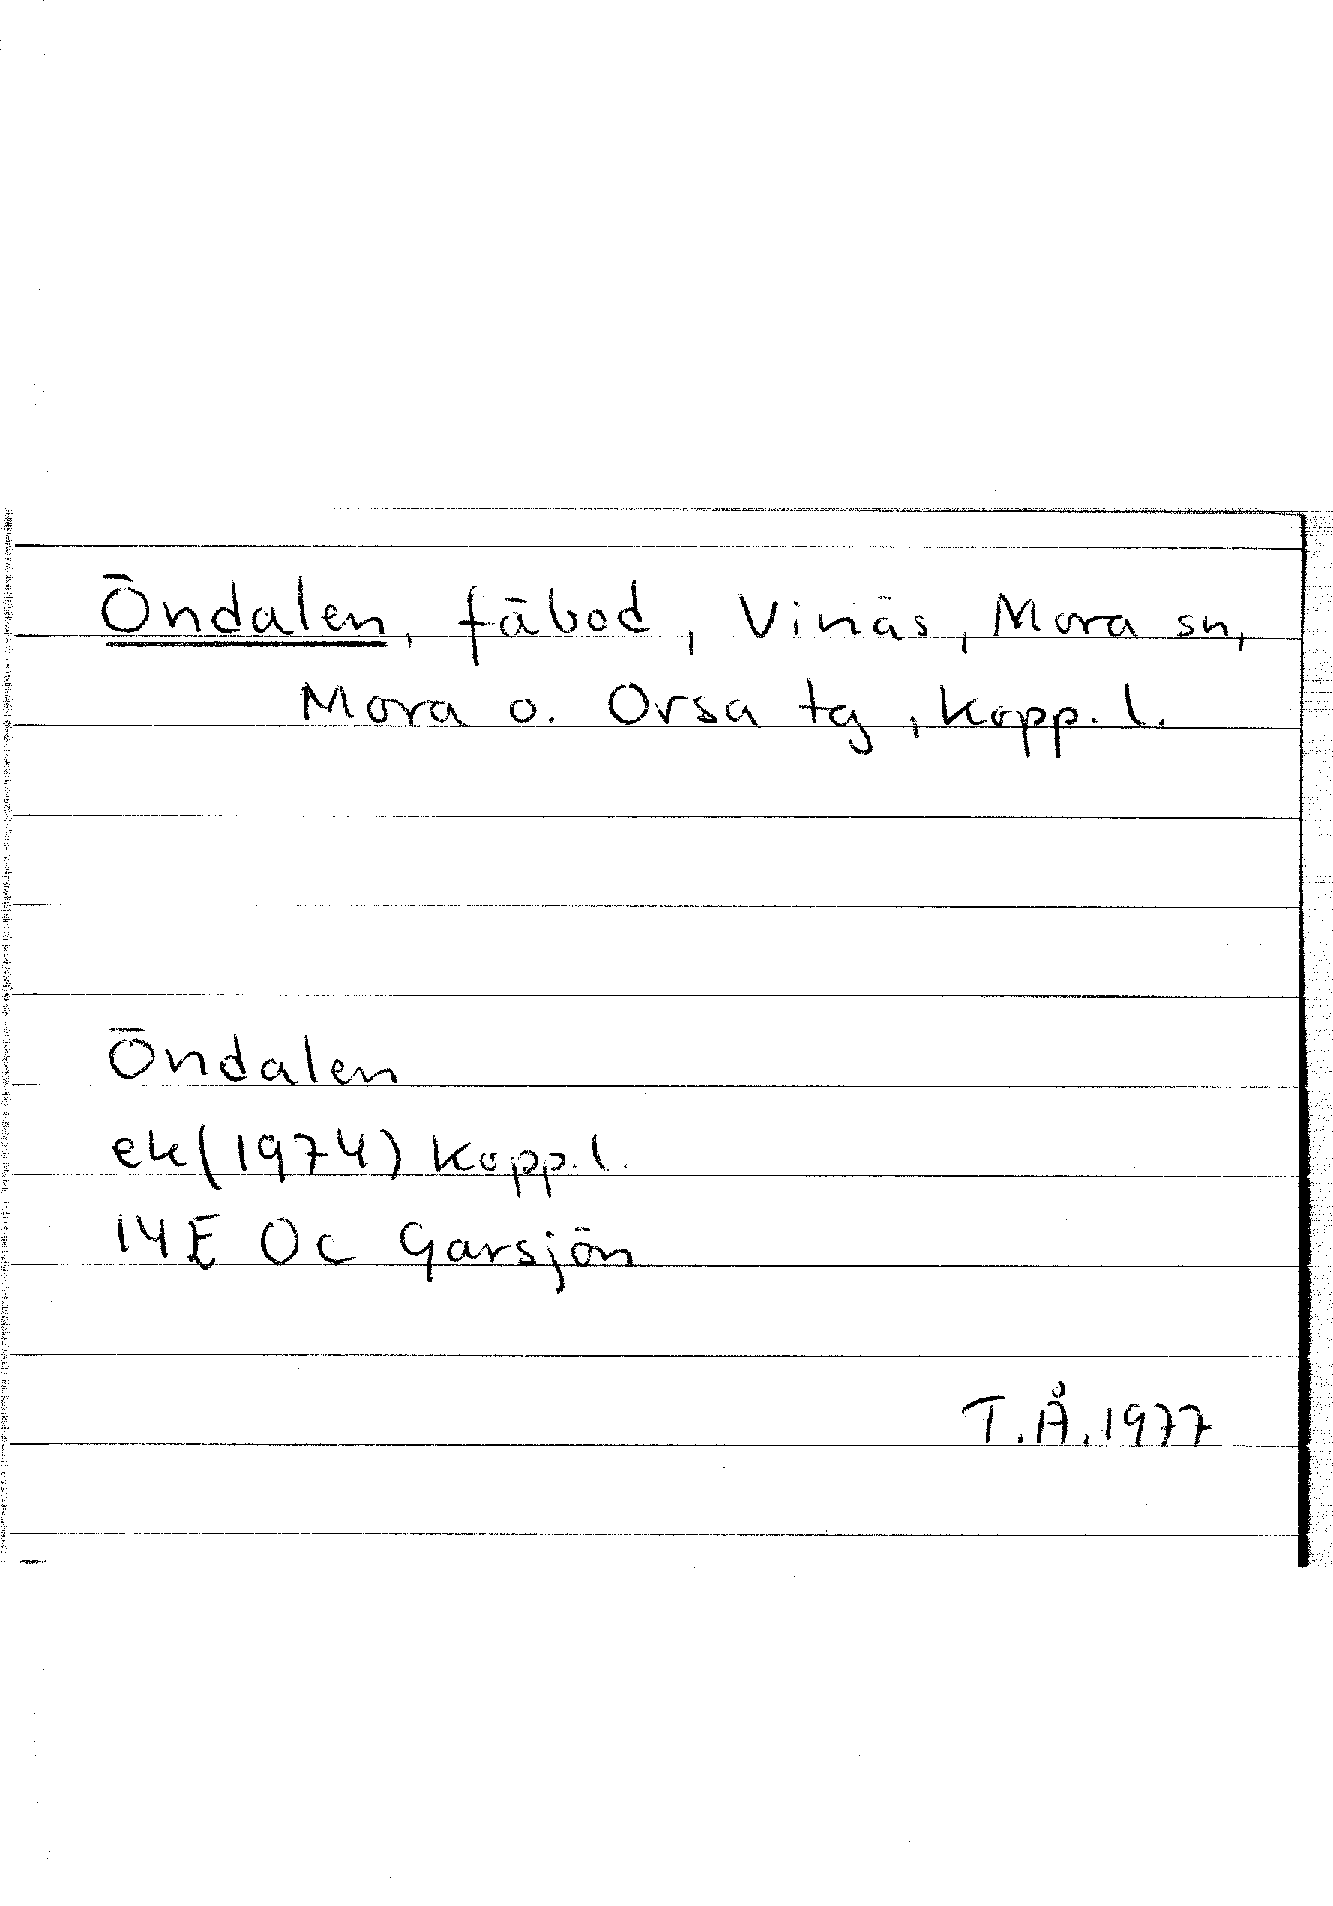 Öndalen, fäbod, Vinäs, Mora sn,
Mora o. Orsa tg, Kopp. l.
Öndalen
ek(1974) Kopp. l.
14E 0c Garsjön
T.Å. 1977